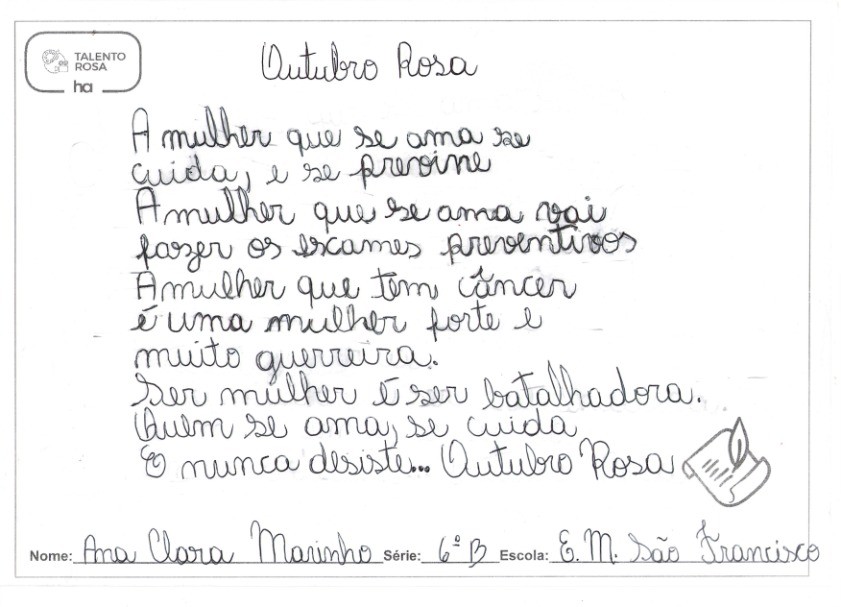 TALENTO
ROSA
ha
Outubro Rosa
A mulher que se ama se
cuida, e se previne
A mulher que se ama vai
fazer os excames preventivos
A mulher que tem câncer
é uma mulher forte e
muito guerreira.
Ser mulher é ser batalhadora.
Quem se ama, se cuida
E nunca desiste... Outubro Rosa
Nome: Ana Clara Marinho Série: 6º B Escola: E. M. São Francisco